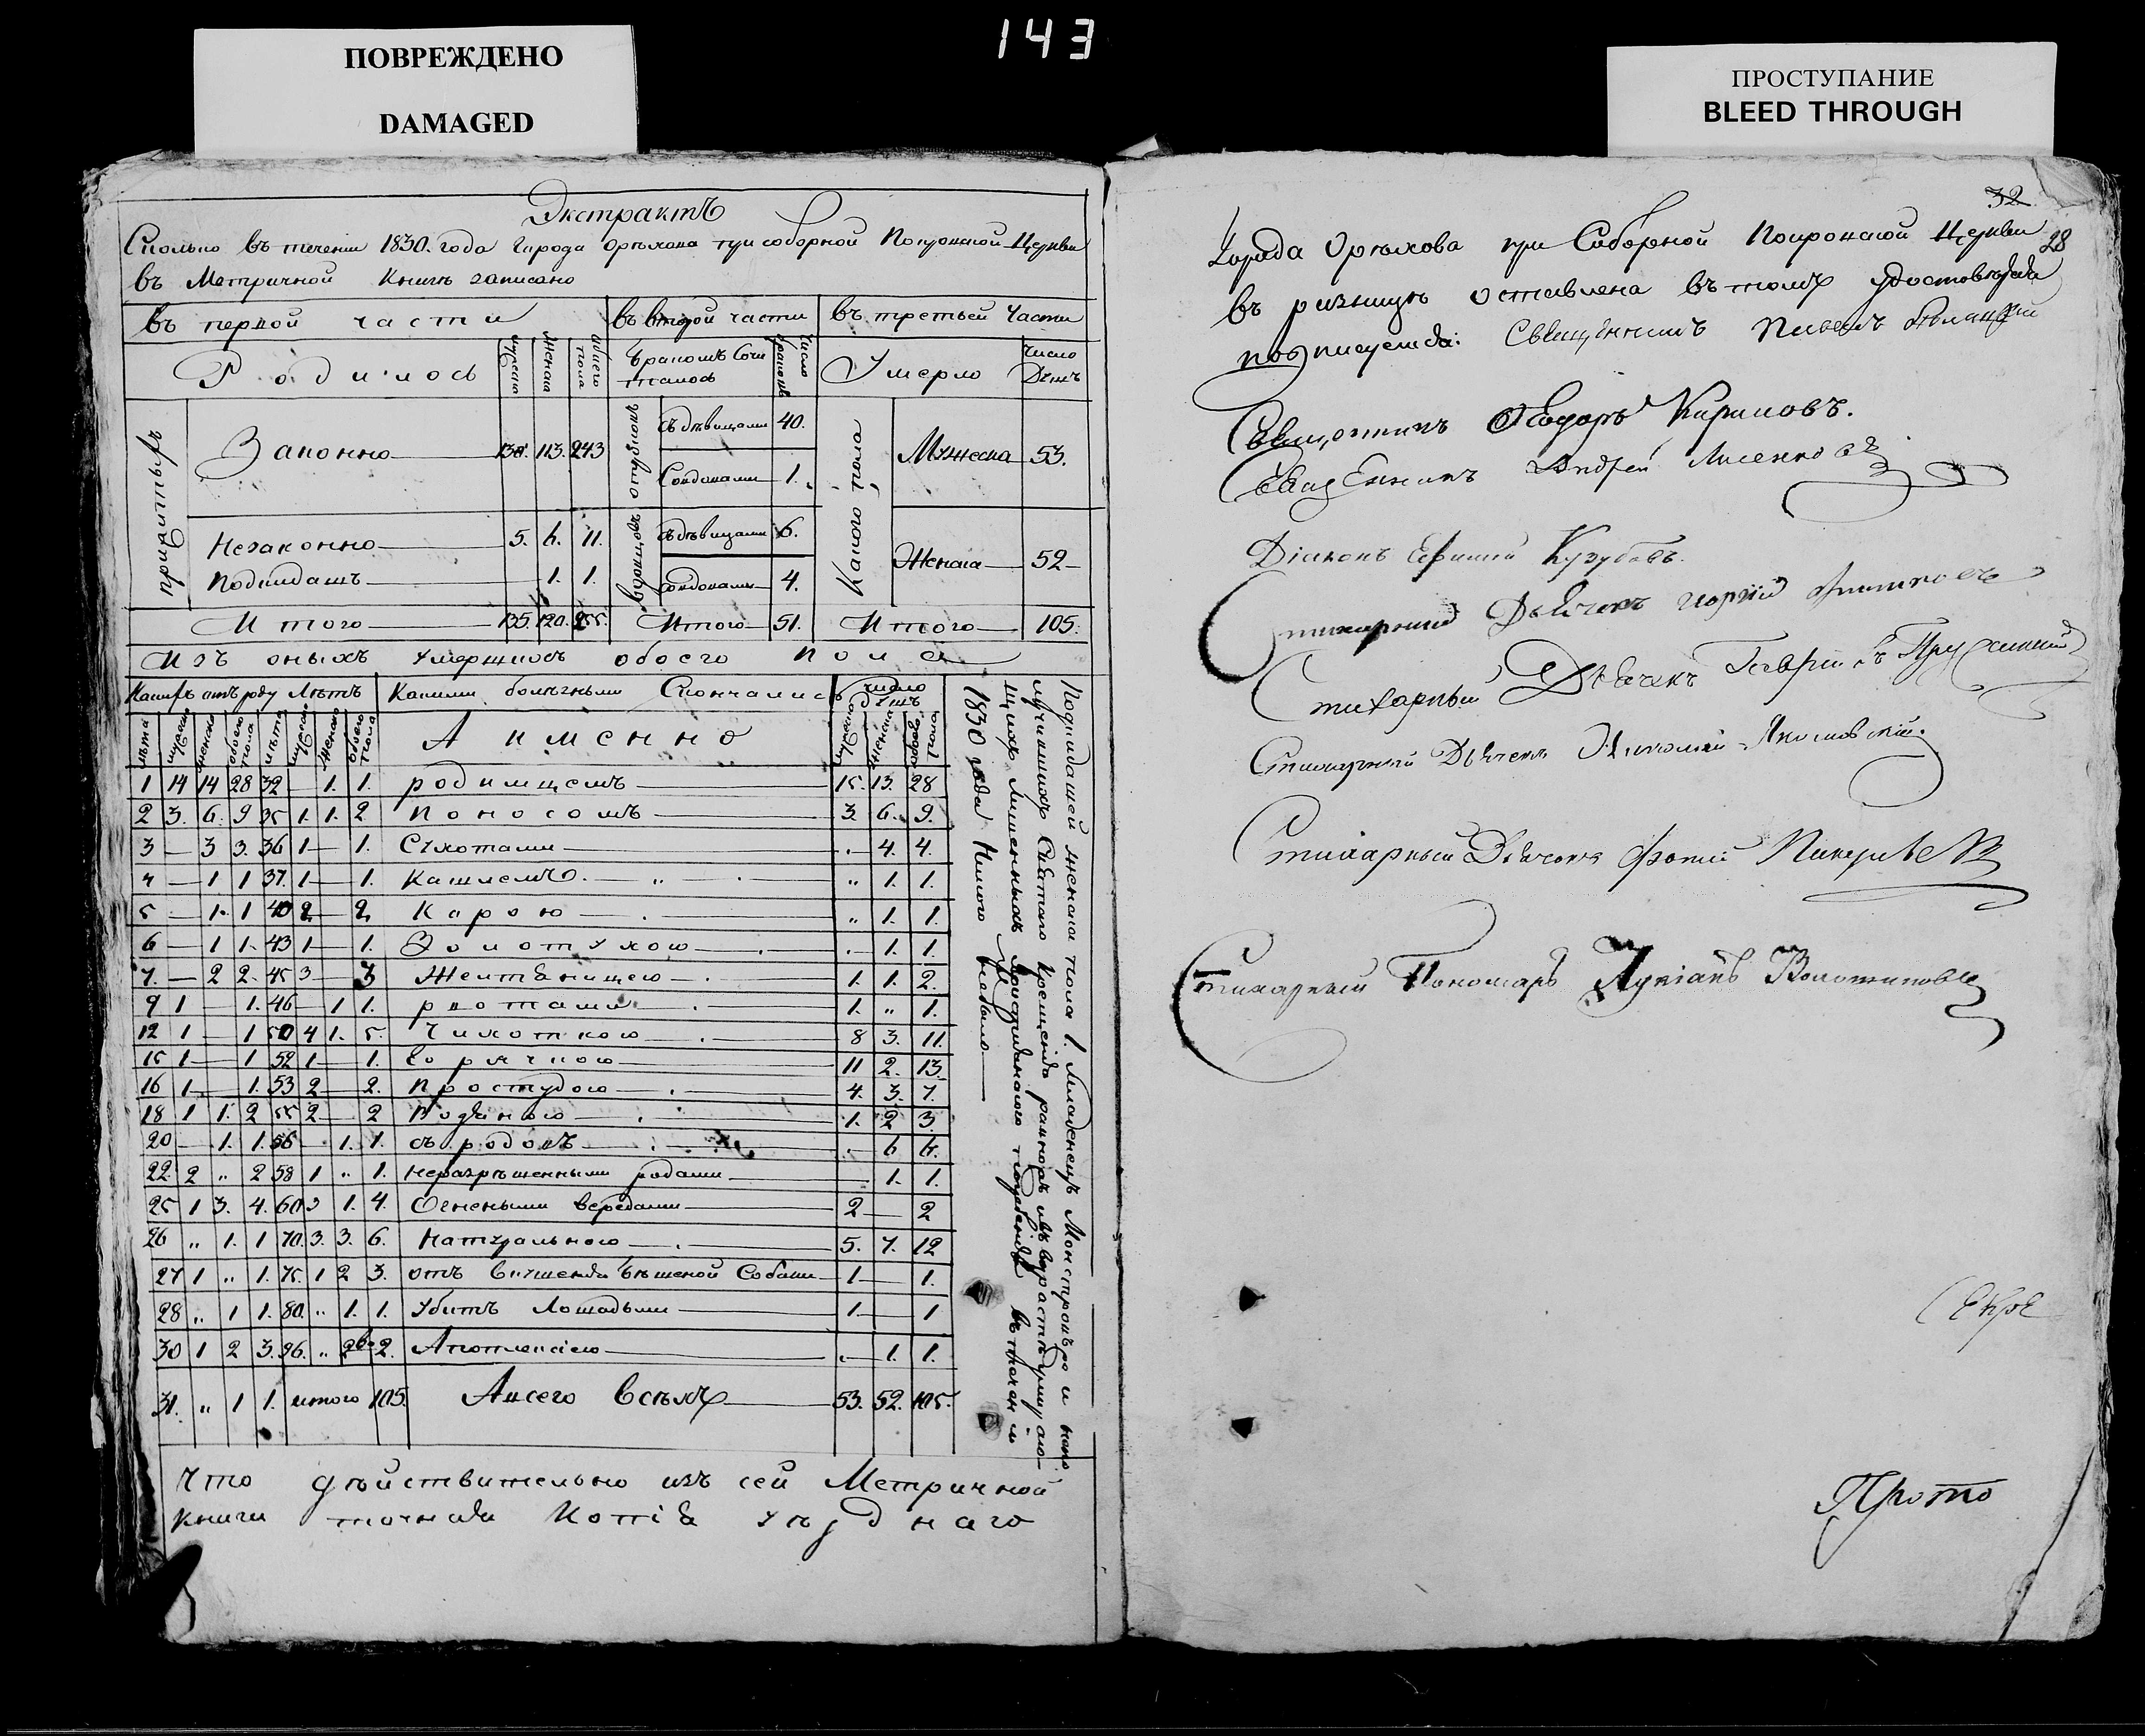 143
ПОВРЕЖДЕНО
DAMAGED
ПРОСТУПАНИЕ
BLEED THROUGH
Экстрактъ
Сколько въ течении 1830. года города Орѣхова при соборной Покровской Церкви
въ Метричной Книгѣ записано
въ первой части
въ второй части
въ третьей Части
Родилось
мужеска
Женска
обоего пола
бракомъ Соче
талось
Число браковъ
Умерло
Число
Душъ
Законно 130. 113. 243
первобрачныхъ
съ дѣвицами 40.
Совдовами 1.
Какого пола
Мужеска 53.
Незаконно 5. 6. 11.
подкидашъ 1. 1.
съ дѣвицами 6.
совдовами 4.
Женска 52
Итого 135. 120. 255.
Итого 51.
Итого 105.
Изъ оныхъ умершихъ обоего пола
Какихъ отъ роду Лѣтъ
Какими болѣзными Скончались
число
Душъ
лѣта мужеска женска обоего пола лѣта мужеска Женска обоего пола
А именно
мужеска Женска обоего пола
1 14 14 28 32 — 1. 1. родимцемъ 15. 13. 28
2 3. 6. 9 35 1. 1. 2 Поносомъ 3. 6. 9.
3 — 3 3. 36 1 — 1. Сухотами 4. 4.
4 — 1 1 37. 1 — 1. Кашлемъ „ 1. 1.
5 — 1. 1 40 2 — 2. Корою „ 1. 1.
6 — 1 1. 43 1 — 1. Золотухою 1. 1.
7. — 2 2. 45 3 — 3 Желтяницею 1. 1. 2.
9 1 — 1. 46 — 1 1. рвотами 1. „ 1.
12 1 — 1 50 4 1. 5. Чихоткою 8 3. 11.
15 1 — 1 52 1 — 1. Горячкою 11 2. 13.
16 1 — 1. 53 2 — 2. Простудою 4. 3. 7.
18 1 1. 2 55 2 — 2 Водяною 1. 2 3.
20 — 1. 1. 56 — 1. 1. съ родовъ 6 6.
22. 2 „ 2 58 1 „ 1. неразрѣшенными родами 1. 1.
25 1 3. 4. 60 3 1. 4. Огнеными вередами 2 — 2
26 „ 1. 1 70. 3. 3. 6. Натурального 5. 7. 12
27 1 „ 1. 75. 1 2 3. отъ вкушенія бѣшеной Собаки 1 — 1.
28 „ 1 1. 80. „ 1. 1. Убитъ Лошадьми 1. — 1
30 1 2 3. 96. „ 2 2. Апоплексіею 1. 1.
31. „ 1 1. итого 105. А всего всѣхъ 53. 52. 105.
Подкидашей женска пола 1. младенецъ
Святаго Крещенія
1830 года Никого небыло
Что дѣйствительно изъ сей Метричной
книги точная Копія уѣзднаго
32
28
Города Орѣхова при Соборной Покровской Церкви
въ ризницѣ оставлена въ томъ удостовѣряя
подписуемся: Священникъ Павелъ
Священникъ Ѳеодоръ Кириловъ.
Священникъ Андрей Лисенковъ
Діаконъ Ефимій
Стихарный Дьячекъ
Стихарный Дьячекъ Гавріилъ
Стихарный Дьячекъ Николай Якимовскій.
Стихарный Дьячекъ Фотій
Стихарный Пономарь Лукіанъ
Секре
Прото